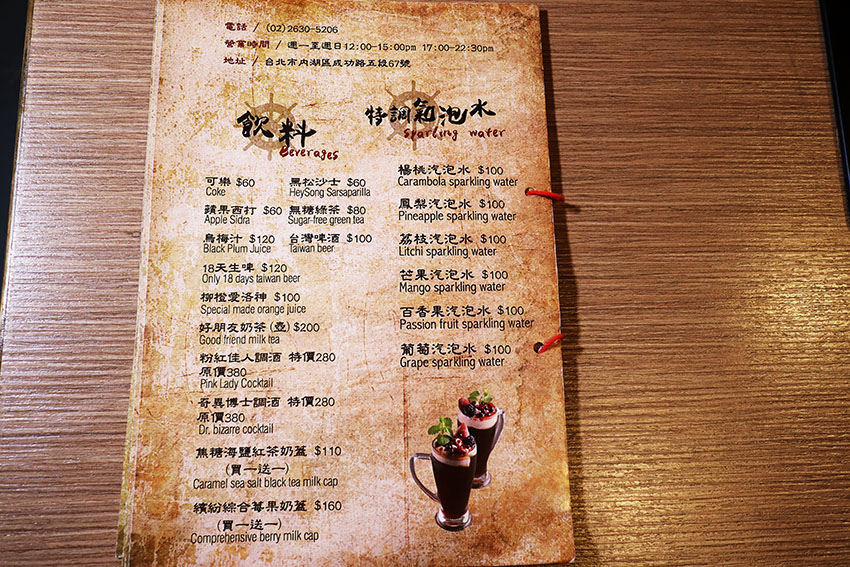 電話 / (02)2630-5206
營業時間 / 週一至週日12:00-15:00pm 17:00-22:30pm
地址 / 台北市內湖區成功路五段67號
飲料
Beverages
可樂 $60
Coke
黑松沙士 $60
HeySong Sarsaparilla
蘋果西打 $60
Apple Sidra
無糖綠茶 $80
Sugar-free green tea
烏梅汁 $120
Black Plum Juice
台灣啤酒 $100
Taiwan beer
18天生啤 $120
Only 18 days taiwan beer
柳橙愛洛神 $100
Special made orange juice
好朋友奶茶(壺)$200
Good friend milk tea
粉紅佳人調酒 特價280
原價380
Pink Lady Cocktail
奇異博士調酒 特價280
原價380
Dr. bizarre cocktail
焦糖海鹽紅茶奶蓋 $110
(買一送一)
Caramel sea salt black tea milk cap
繽紛綜合莓果奶蓋 $160
(買一送一)
Comprehensive berry milk cap
特調氣泡水
Sparling water
楊桃汽泡水 $100
Carambola sparkling water
鳳梨汽泡水 $100
Pineapple sparkling water
荔枝汽泡水 $100
Litchi sparkling water
芒果汽泡水 $100
Mango sparkling water
百香果汽泡水 $100
Passion fruit sparkling water
葡萄汽泡水 $100
Grape sparkling water